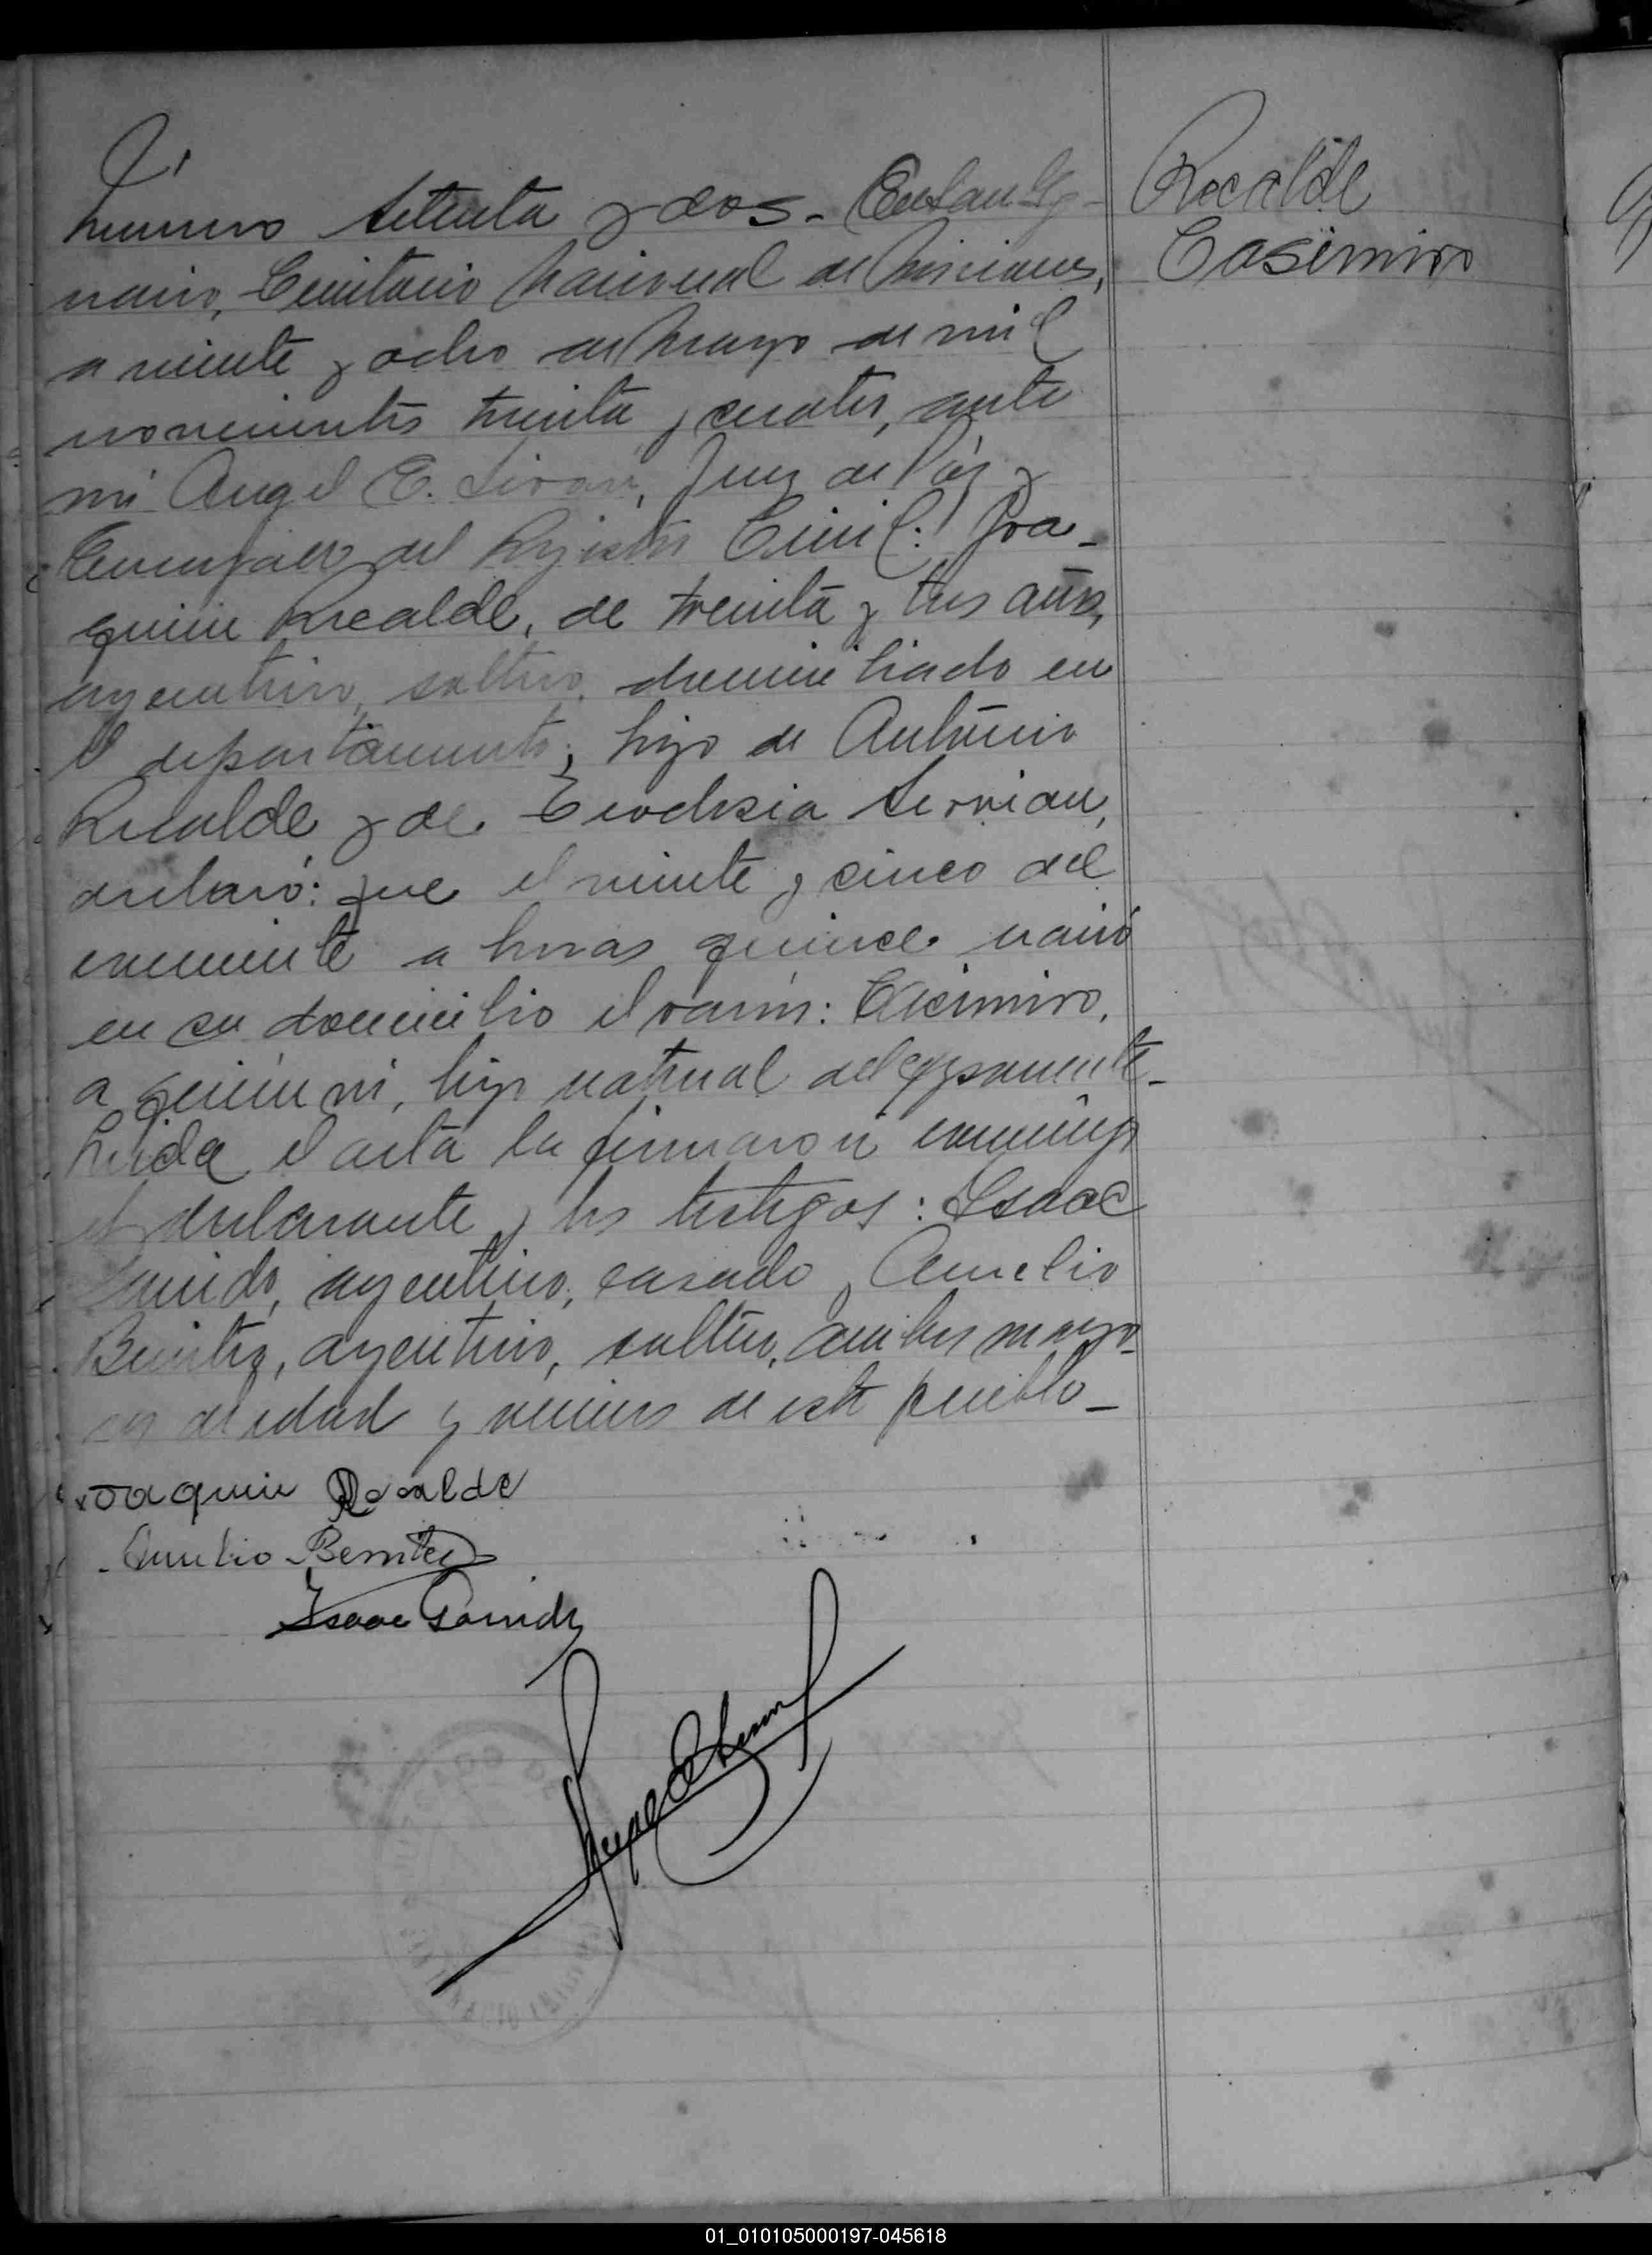 Recalde
Casimiro
Número setenta y dos. En San Ig-
nacio, Territorio Nacional de Misiones,
a veinte y ocho de Mayo de mil
novecientos treinta y cuatro, ante
mí Angel E. Juez de Páz y
Encargado del Registro Civil: Joa-
quin Recalde, de treinta y tres años,
argentino, soltero, domiciliado en
el departamento; hijo de Antonio
Recalde y de Teodosia Servian,
declaró: que el veinte y cinco del
corriente a horas quince nació
en su domicilio el varón: Casimiro,
a quien ví, hijo natural del exponente.
Leida el acta la firmaron conmigo
el declarante y los testigos: Isaac
argentino, casado y Aurelio
Benitez, argentino, soltero, ambos mayo-
res de edad y vecinos de este pueblo_
Joaquin Recalde
Aurelio Benitez
Isaac
01_010105000197-045618